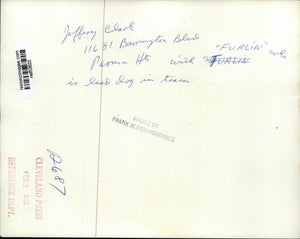 Jeffrey Clark
11681 Barrington Blvd
Parma Hts with "FURLIN" who
is lead dog in team
PHOTO BY
FRANK ALEKSANDROWICZ
CLEVELAND PRESS
FEB
REFERENCE DEPT.
P687